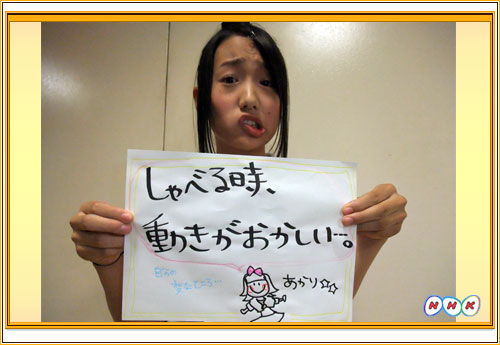 しゃべる時、
動きがおかしい…。
あかり☆☆
NHK